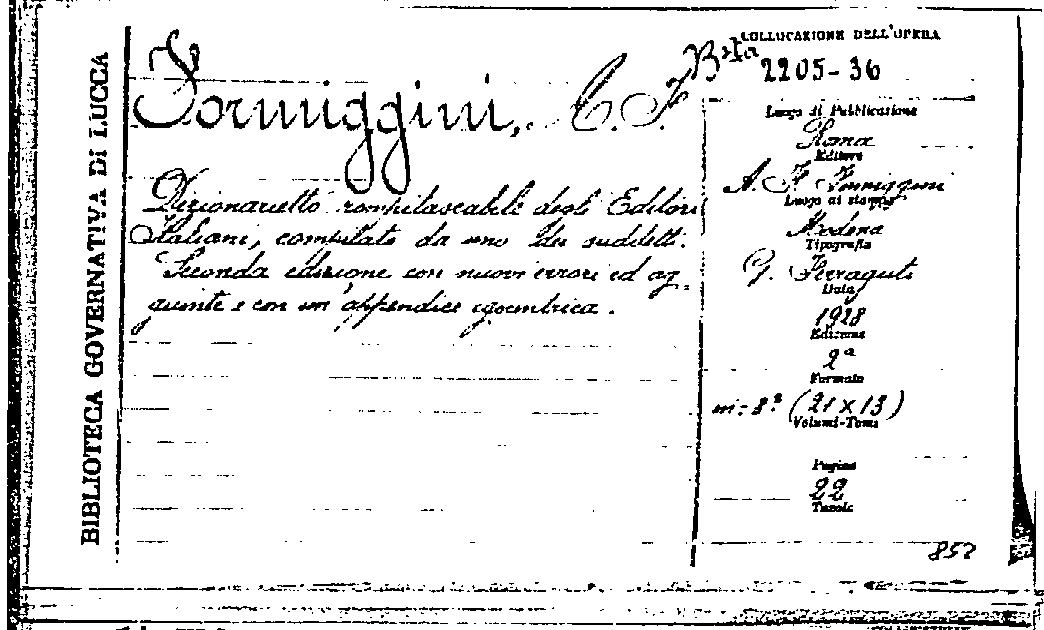 BIBLIOTECA GOVERNATIVA DI LUCCA
Formiggini, A. F.
Dizionarietto rompitascabile degli Editori
Italiani, compilato da uno dei suddetti.
Seconda edizione con nuovi errori ed ag-
giunte e con un'appendice egocentrica.
COLLOCAZIONE DELL'OPERA
Bta
2205-36
Luogo di Pubblicazione
Roma
Editore
A. F. Formiggini
Luogo di stampa
Modena
Tipografia
G. Ferraguti
Data
1928
Edizione
2ª
Formato
in-8º (21 x 13)
Volumi-Tomi
Pagine
22
Tavole
852